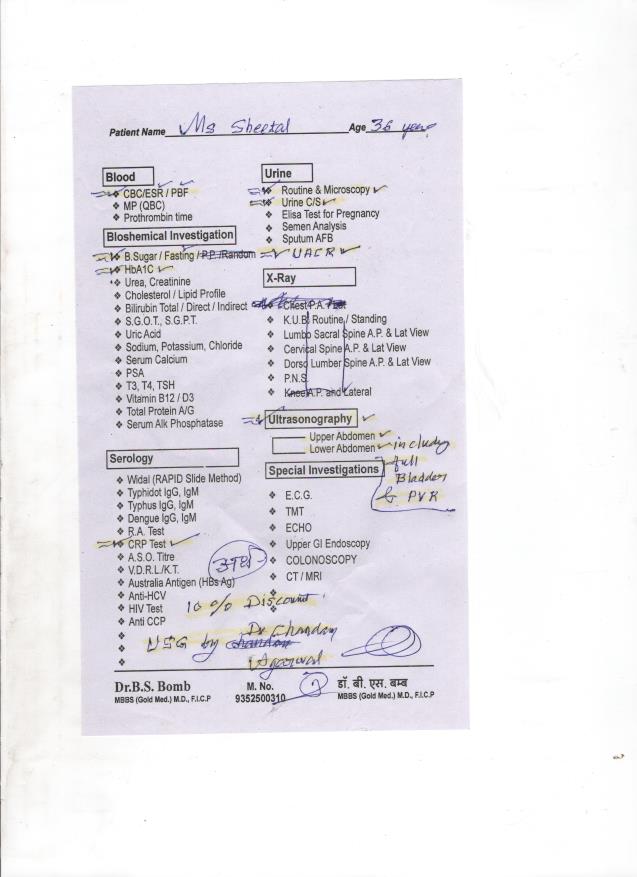 Patient Name Ms Sheetal Age 36 year
Blood
❖ CBC/ESR / PBF
❖ MP (QBC)
❖ Prothrombin time
Bioshemical Investigation
❖ B.Sugar / Fasting / P.P. /Random
❖ HbA1C
❖ Urea, Creatinine
❖ Cholesterol / Lipid Profile
❖ Bilirubin Total / Direct / Indirect
❖ S.G.O.T., S.G.P.T.
❖ Uric Acid
❖ Sodium, Potassium, Chloride
❖ Serum Calcium
❖ PSA
❖ T3, T4, TSH
❖ Vitamin B12 / D3
❖ Total Protein A/G
❖ Serum Alk Phosphatase
Serology
❖ Widal (RAPID Slide Method)
❖ Typhidot IgG, IgM
❖ Typhus IgG, IgM
❖ Dengue IgG, IgM
❖ R.A. Test
❖ CRP Test
❖ A.S.O. Titre
❖ V.D.R.L./K.T.
❖ Australia Antigen (HBs Ag)
❖ Anti-HCV
❖ HIV Test
❖ Anti CCP
10 % Discount
USG by Dr Chandan
Agarwal
Urine
❖ Routine & Microscopy
❖ Urine C/S
❖ Elisa Test for Pregnancy
❖ Semen Analysis
❖ Sputum AFB
UACR
X-Ray
❖ Chest P.A.
❖ K.U.B. Routine / Standing
❖ Lumbo Sacral Spine A.P. & Lat View
❖ Cervical Spine A.P. & Lat View
❖ Dorso Lumber Spine A.P. & Lat View
❖ P.N.S.
❖ Knee A.P. and Lateral
Ultrasonography
Upper Abdomen
Lower Abdomen
include
full
Bladder
& PVR
Special Investigations
❖ E.C.G.
❖ TMT
❖ ECHO
❖ Upper GI Endoscopy
❖ COLONOSCOPY
❖ CT / MRI
Dr.B.S. Bomb
MBBS (Gold Med.) M.D., F.I.C.P
M. No.
9352500310
डॉ. बी. एस. बम्ब
MBBS (Gold Med.) M.D., F.I.C.P